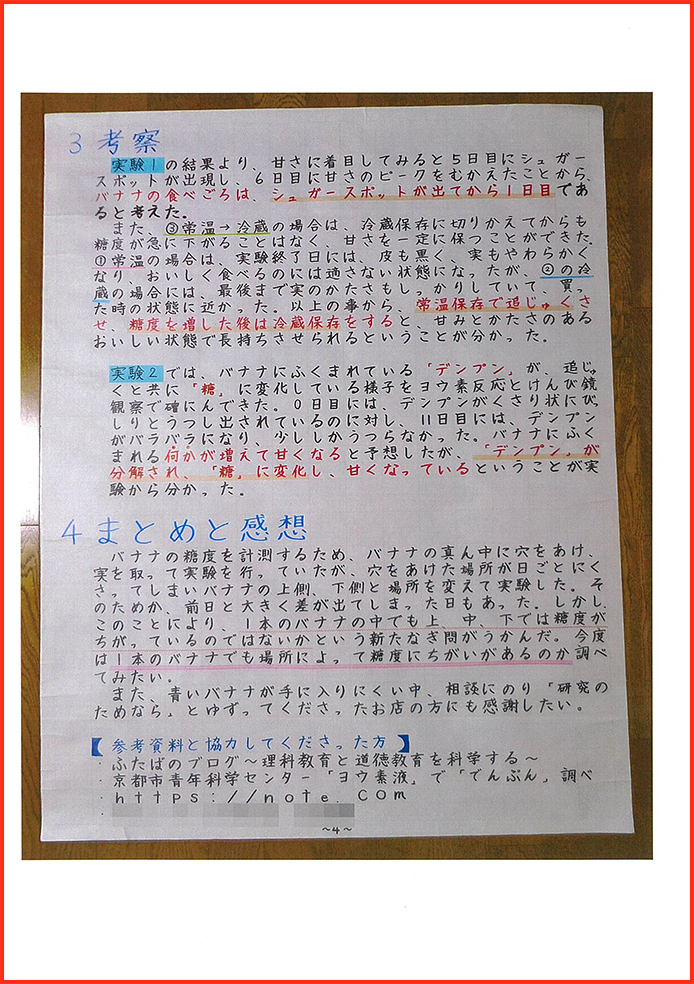 3 考察
実験1の結果より、甘さに着目してみると5日目にシュガー
スポットが出現し、6日目に甘さのピークをむかえたことから、
バナナの食べごろは、シュガースポットが出てから1日目であ
ると考えた。
また、③常温→冷蔵の場合は、冷蔵保存に切りかえてからも
糖度が急に下がることはなく、甘さを一定に保つことができた。
①常温の場合は、実験終了日には、皮も黒く、実もやわらかく
なり、おいしく食べるのには適さない状態になったが、②の冷
蔵の場合には、最後まで実のかたさもしっかりしていて、買っ
た時の状態に近かった。以上の事から、常温保存で追じゅくさ
せ、糖度を増した後は冷蔵保存をすると、甘みとかたさのある
おいしい状態で長持ちさせられるということが分かった。
実験2では、バナナにふくまれている「デンプン」が、追じゅ
くと共に「糖」に変化している様子をヨウ素反応とけんび鏡
観察で確にんできた。0日目には、デンプンがくさり状にびっ
しりとうつし出されているのに対し、11日目には、デンプン
がバラバラになり、少ししかうつらなかった。バナナにふく
まれる何かが増えて甘くなると予想したが、「デンプン」が
分解され、「糖」に変化し、甘くなっているということが実
験から分かった。
4 まとめと感想
バナナの糖度を計測するため、バナナの真ん中に穴をあけ、
実を取って実験を行っていたが、穴をあけた場所が日ごとにく
さってしまいバナナの上側、下側と場所を変えて実験した。そ
のためか、前日と大きく差が出てしまった日もあった。しかし、
このことにより、1本のバナナの中でも上、中、下では糖度が
ちがっているのではないかという新たなぎ問がうかんだ。今度
は1本のバナナでも場所によって糖度にちがいがあるのか調べ
てみたい。
また、青いバナナが手に入りにくい中、相談にのり「研究の
ためなら」とゆずってくださったお店の方にも感謝したい。
【参考資料と協力してくださった方】
・ふたばのブログ〜理科教育と道徳教育を科学する〜
・京都市青年科学センター「ヨウ素液」で「でんぷん」調べ
・https://note.com
〜4〜